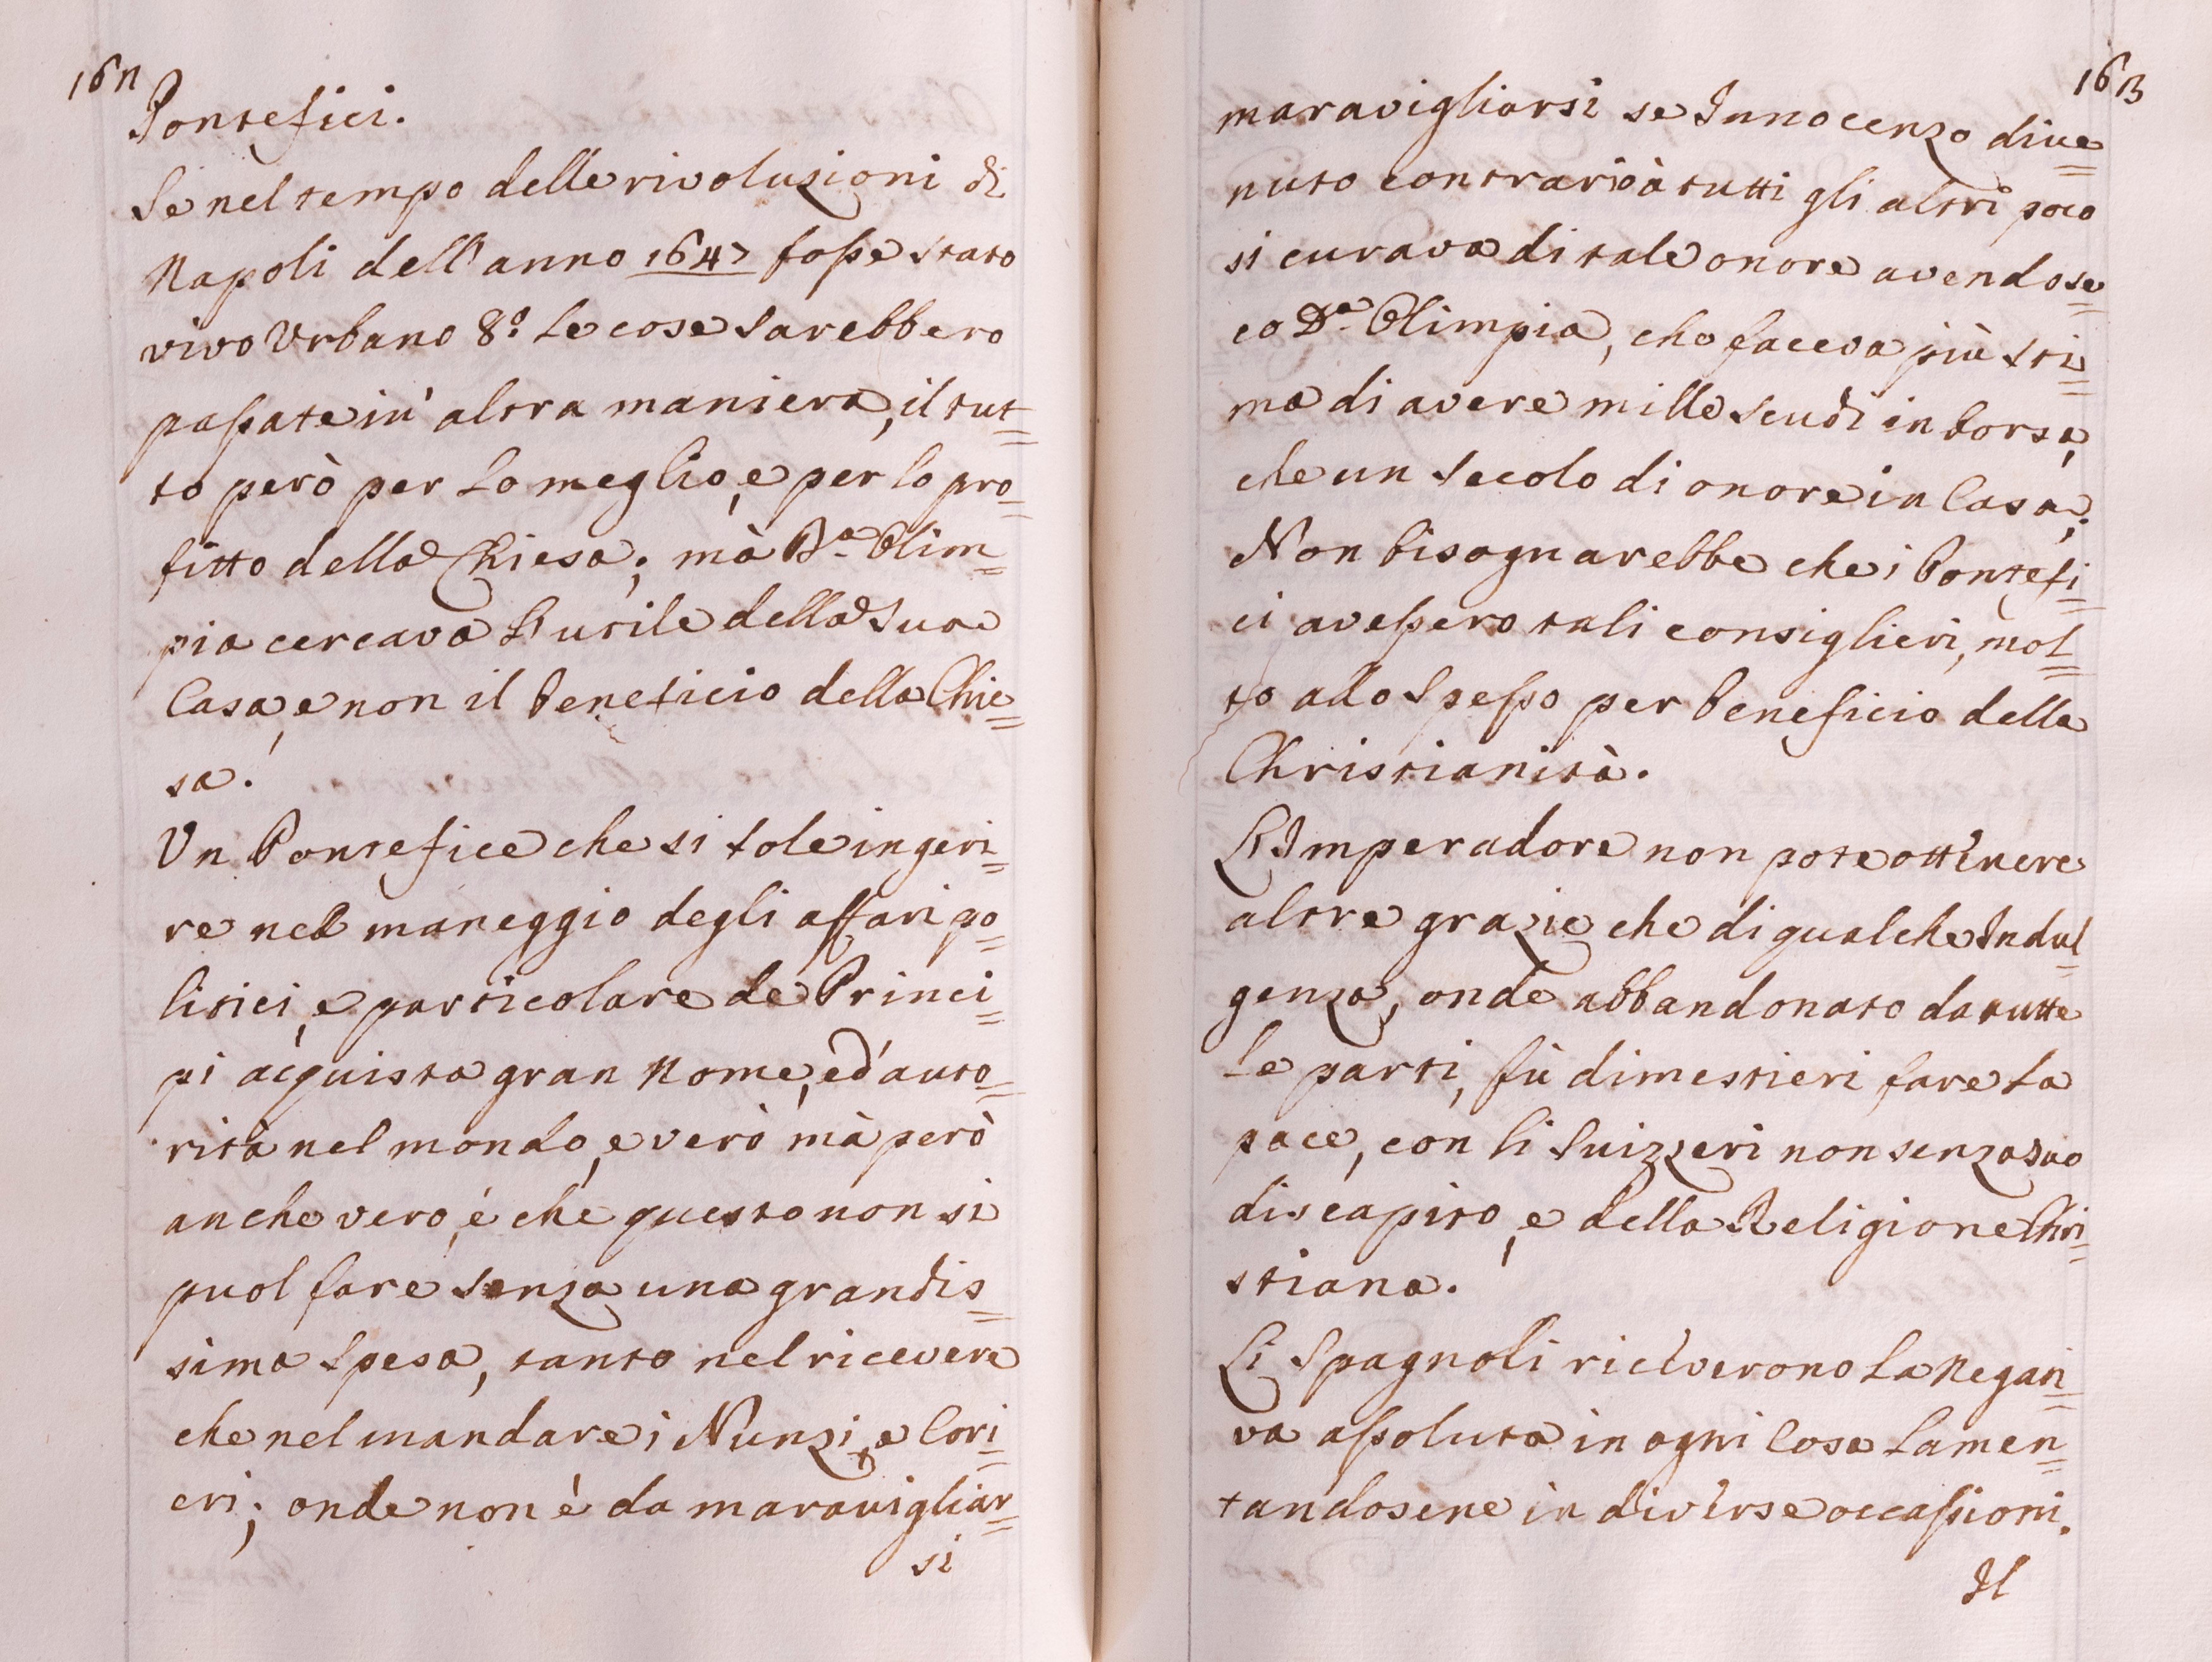 Pontefici.
Se nel tempo delle rivoluzioni di
Napoli dell'anno 1647 fosse stato
vivo Vrbano 8.º le cose sarebbero
passate in' altra maniera, il tut=
to però per lo meglio, e per lo pro=
fitto della Chiesa; mà D.ª Olim=
pia cercava l'utile della sua
Casa, e non il beneficio della Chie=
sa.
Un Pontefice che si sole ingeri=
re nel maneggio degli affari po=
litici, e particolare de Princi=
pi acquista gran Nome, ed'auto=
rità nel mondo, e verò mà però
anche vero, é che questo non si
puol fare senza una grandis=
sima spesa, tanto nel ricevere
che nel mandare i Nunzi, e Cori=
eri; onde non è da maravigliar=
si
maravigliarsi se Innocenzo dive=
nuto contrario à tutti gli altri poco
si curava di tale onore avendo se=
co D.ª Olimpia, che faceva più sti=
ma di avere mille scudi in borsa,
che un secolo di onore in Casa;
Non bisognarebbe che i Pontefi=
ci avessero tali consiglieri, mol=
to ado spesso per beneficio della
Christianità.
L'Imperadore non pote ottinere
altre grazie che di qualche Indul=
genza, onde abbandonato da tutte
le parti, fù di mestieri fare la
pace, con li Suizzeri non senza suo
discapito, e della Religione Chri=
stiana.
Li Spagnoli riceverono la Negati=
va assoluta in ogni Cosa lamen=
tandosene in diverse occassioni.
Il